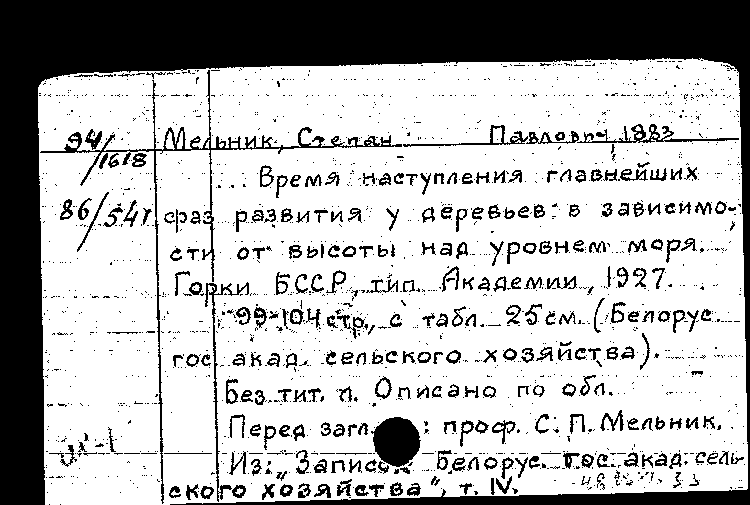 94/1618 Мельник, Степан Павлович, 1883
... Время наступления главнейших
86/541 фаз развития у деревьев в зависимо-
сти от высоты над уровнем моря.
Горки БССР, тип. Академии, 1927.
99-104 стр., с табл. 25 см. (Белорус.
гос. акад. сельского хозяйства).
Без тит. л. Описано по обл.
Перед загл. : проф. С. П. Мельник.
Из: „Записок Белорус. гос. акад. сель-
ского хозяйства", т. IV.